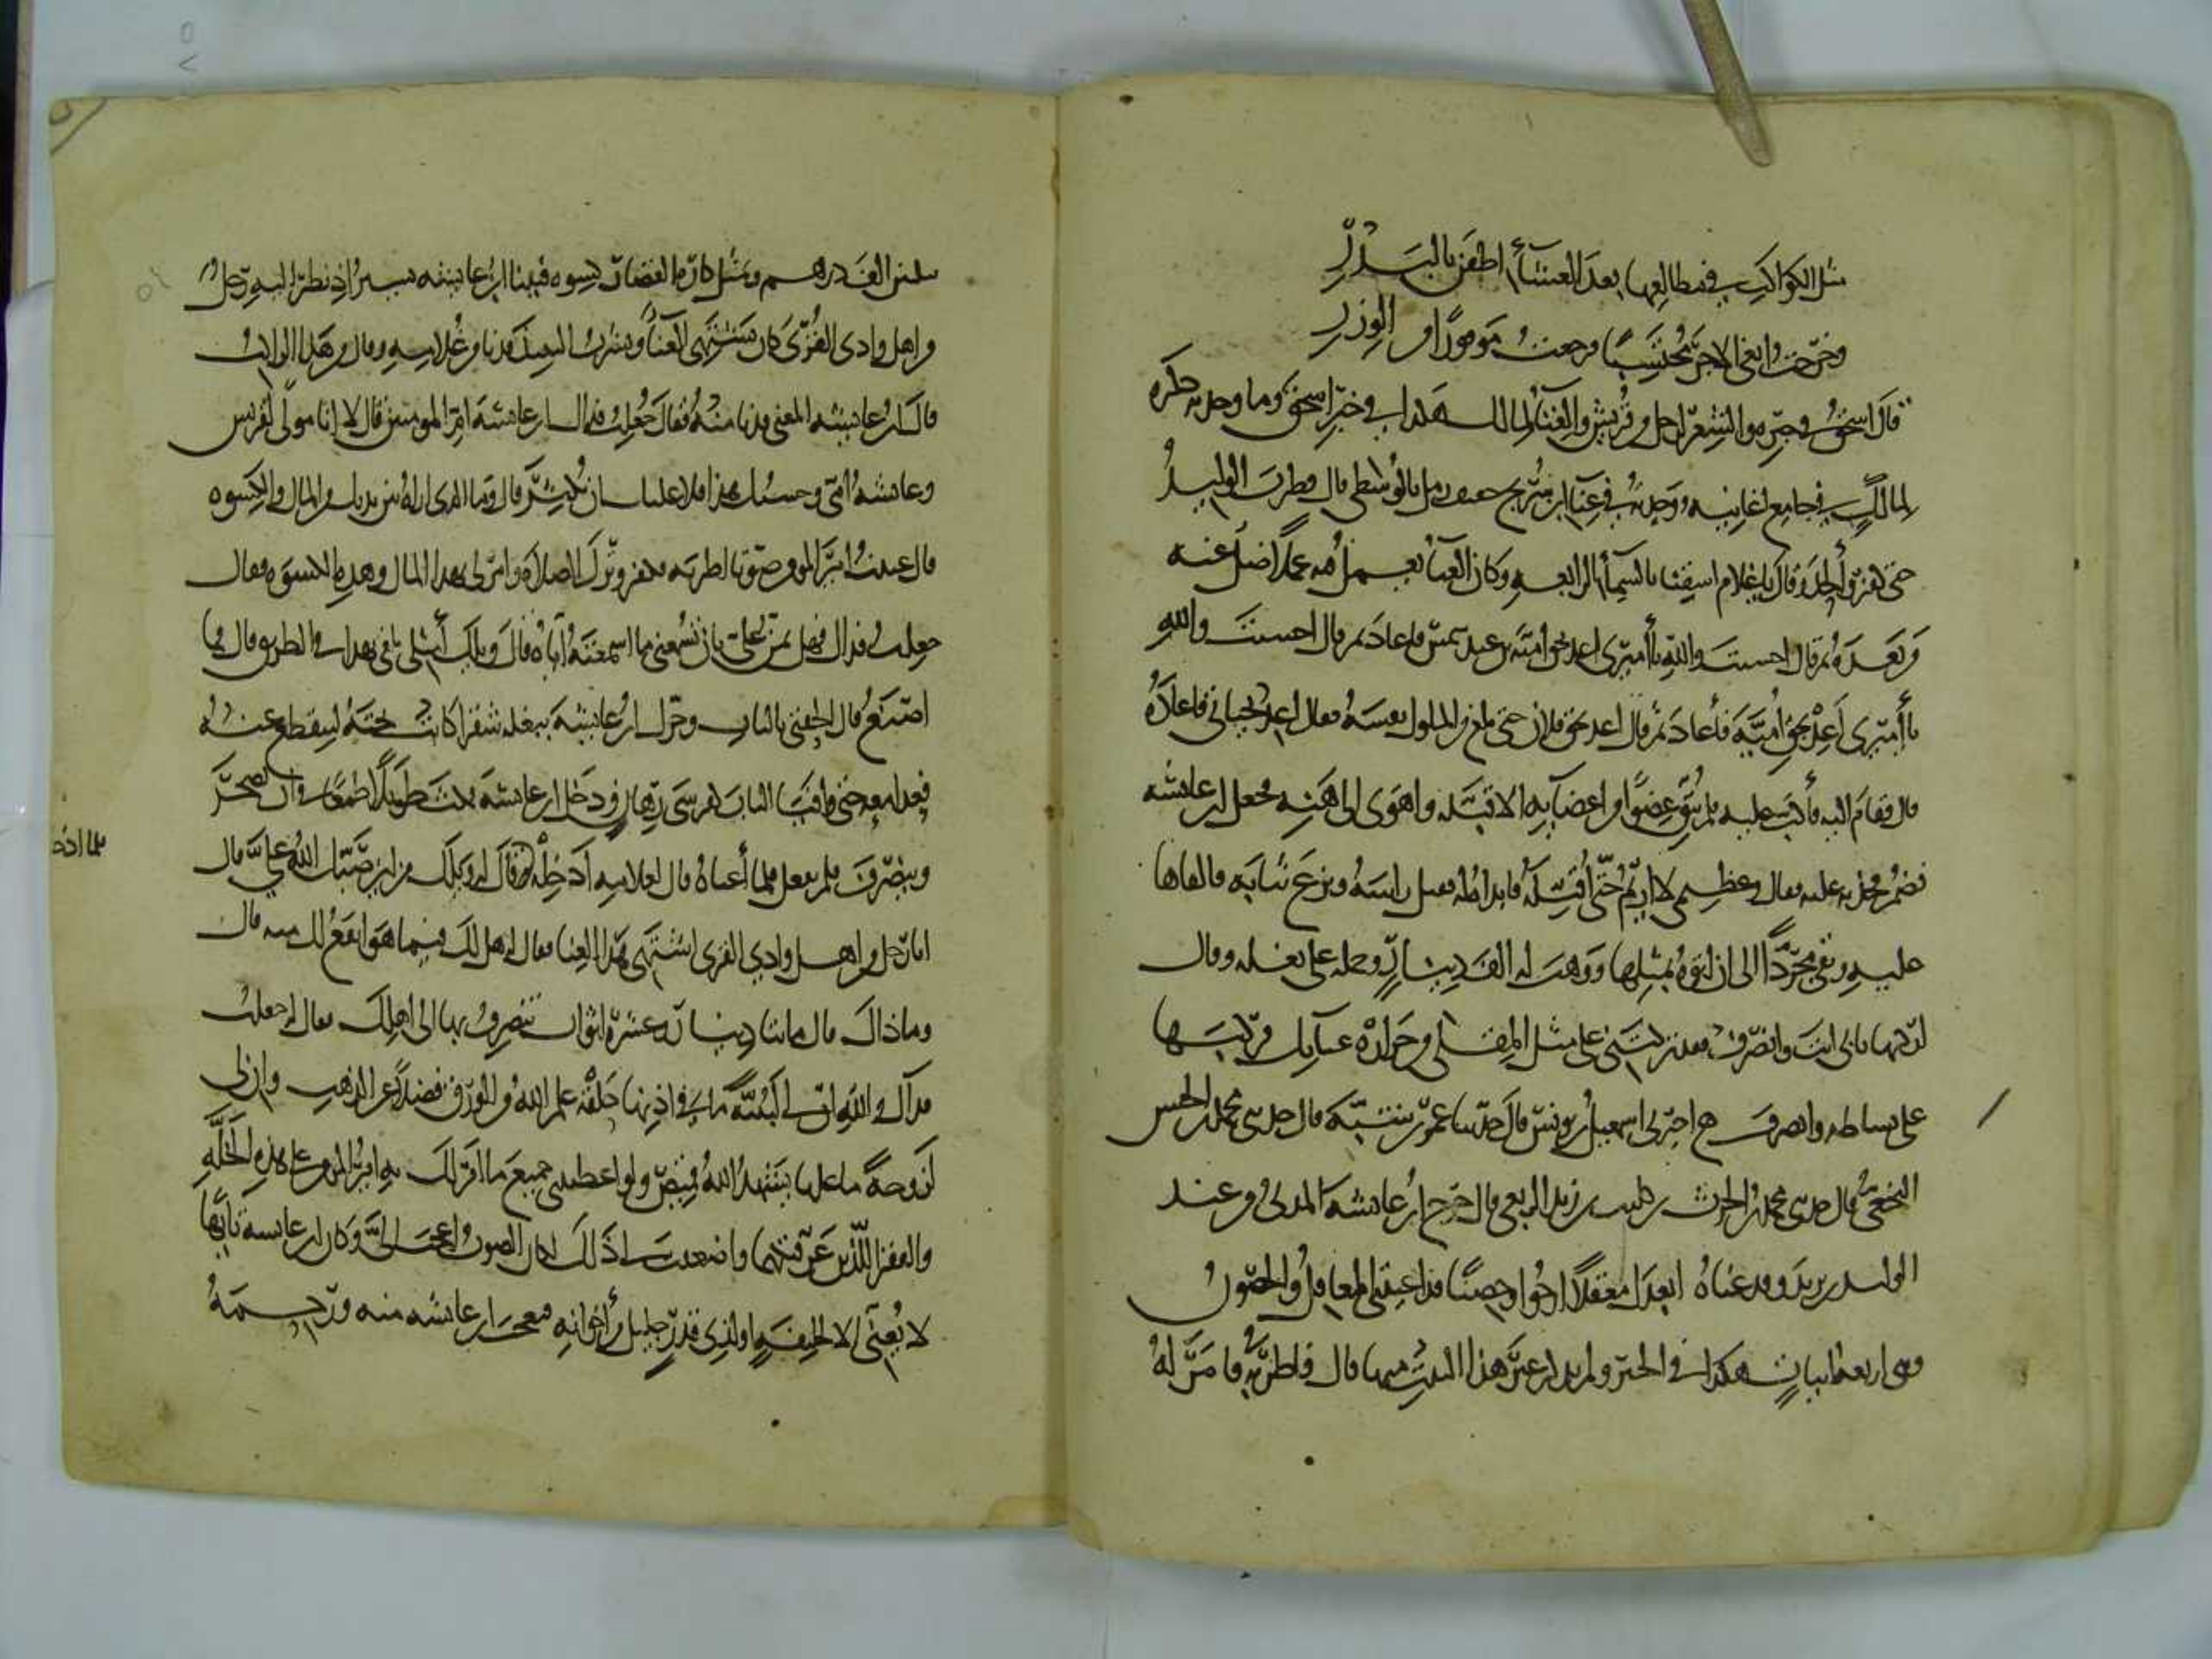 مثل الكواكب في مطالعها بعد العشاء اطفن بالبدر
وخرجت ابغي الاجر محتسبا فرجعت موفورا من الوزر
قال اسحق في خبره والشعر لرجل من قريش والغنا لمالك هكذا في خبر اسحق وما وجدته ذكره
لمالك في جامع اغانيه ووجدته في غنا ابن سريج خفيف رمل بالوسطى قال فطرب الوليد
حتى كفر والحد وقال يا غلام اسقنا بالسماء الرابعه وكان الغنا يعمل فيه عملا ضل عنه
من بعده ثم قال احسنت والله يا اميري اعد بحق اميه بن عبد شمس فاعاد ثم قال احسنت والله
يا اميري اعد بحق اميه فاعاد ثم قال اعد بحق فلان حتى بلغ من الملوك نفسه فقال اعد بحياتي فاعاده
قال فقام اليه فاكب عليه فلم يبق عضو من اعضايه الا قبله واهوى الى هنه فجعل ابن عايشه
يضم فخذيه عليه فقال والعظيم لا تريم حتى اقبله فابداه له فقبل راسه ونزع ثيابه فالقاها
عليه وبقي مجردا الى ان اتوه بمثلها ووهب له الف دينار وحمله على بغله وقال
اركبها بابي انت وانصرف فقد تركتني على مثل المقلى من حراره غنايك فركبها
على بساطه وانصرف اخبرني اسمعيل بن يونس قال حدثنا عمر بن شبه قال حدثني محمد بن الحسن
النخعي قال حدثني محمد بن الحرث بن كليب بن زيد الربعي قال خرج ابن عايشه المدني من عند
الوليد بن يزيد وقد غناه ابعدك معقلا ارجو وحصنا قد اعيتني المعاقل والحصون
وهي اربعه ابيات هكذا في الخبر ولم يذكر غير هذا البيت منها قال فاطربه فامر له
بثلثين الف درهم وبمثل كارة القصار كسوه فبينا ابن عايشه يسير اذ نظر اليه رجل
من اهل وادي القرى كان يشتهي الغنا ويشرب النبيذ فدنا من غلامه وقال من هذا الراكب
قال ابن عايشه المغني فدنا منه فقال جعلت فداك انت ابن عايشه ام المومنين قال لا انا مولى لقريش
وعايشه امي وحسبك هذا فلا عليك ان تكثر قال وما الذي اراه بين يديك من المال والكسوه
قال غنيت امير المومنين صوتا فاطربته فكفر وترك الصلاه وامر لي بهذا المال وهذه الكسوه فقال
جعلت فداك فهل تمن علي بان تسمعني ما اسمعته اياه فقال ويلك امثلي يكلم بهذا في الطريق قال فما
اصنع قال الحقني بالباب وحرك ابن عايشه بغله شقرا كانت تحته لينقطع عنه
فعدا معه حتى وافيا الباب كفرسي رهان ودخل ابن عايشه فمكث طويلا طمعا في ان يضجر
وينصرف فلم يفعل فلما اعياه قال لغلامه ادخله قال له ويلك من اين صبك الله علي قال
انا رجل من اهل وادي القرى اشتهي هذا الغنا فقال له هل لك فيما هو انفع لك منه قال
وما ذاك قال مايتا دينار وعشره اثواب تنصرف بها الى اهلك فقال له جعلت
فداك والله ان لي لبنيه ما في اذنها حلقه علم الله من الورق فضلا عن الذهب وان لي
لزوجه ما عليها يشهد الله قميص ولو اعطيتني جميع ما امر لك به امير المومنين على هذه الخله
والفقر اللذين عرفتكهما واضعفت لي ذلك لكان الصوت اعجب الي وكان ابن عايشه تايها
لا يغني الا لخليفه او لذي قدر جليل من اخوانه فعجب ابن عايشه منه ورحمه
فلما ادخله